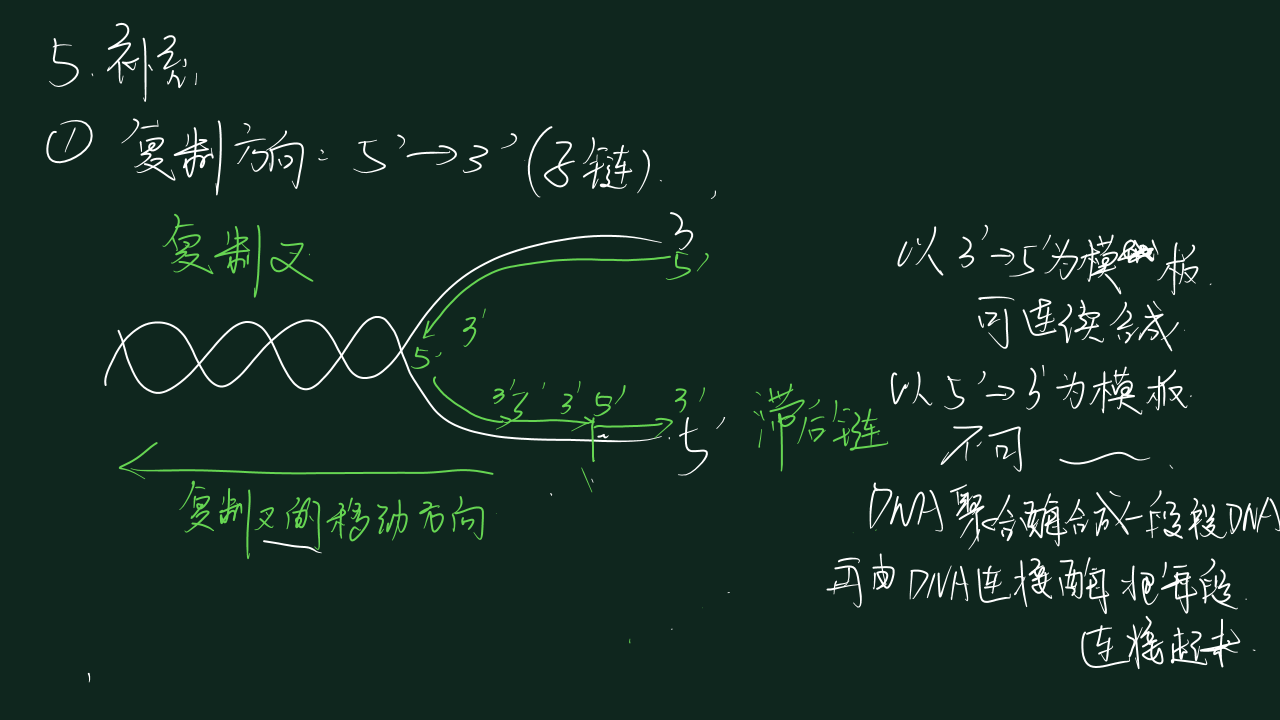 5. 补充
① 复制方向: 5'→3' (子链).
复制叉
3'
5'
3'
5'
3' 3' 3' 5' 3'
5'
滞后链
复制叉的移动方向
以 3'→5'为模板.
可连续合成
以 5'→3'为模板
不可
DNA聚合酶合成一段段DNA
再由DNA连接酶把每段
连接起来.